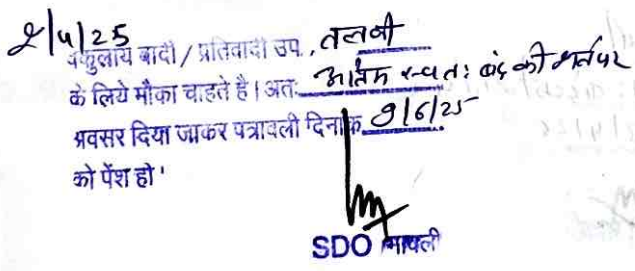 2/4/25
वकुलाय वादी / प्रतिवादी उप. तलबी
के लिये मौका चाहते है। अतः अंतिम स्वतः बंद की शर्त पर
अवसर दिया जाकर पत्रावली दिनांक 9/6/25
को पेंश हो'
SDO मावली